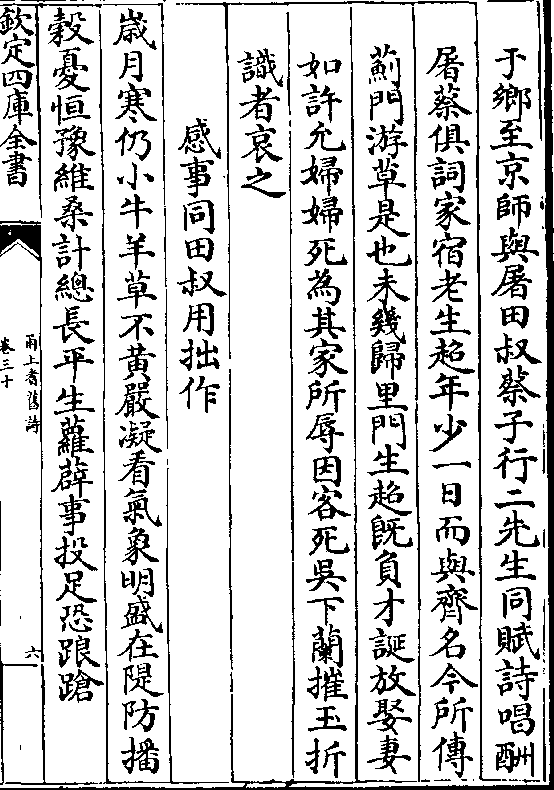 于鄉至京師與屠田叔蔡子行二先生同賦詩唱酬
屠蔡俱詞家宿老生超年少一日而與齊名今所傳
薊門游草是也未幾歸里門生超既負才誕放娶妻
如許允婦婦死為其家所辱因客死吳下蘭摧玉折
識者哀之
感事同田叔用拙作
歲月寒仍小牛羊草不黃嚴凝看氣象明盛在隄防播
穀憂恒豫維桑計總長平生蘿薜事投足恐踉蹌
欽定四庫全書
甬上耆舊詩
卷三十
六